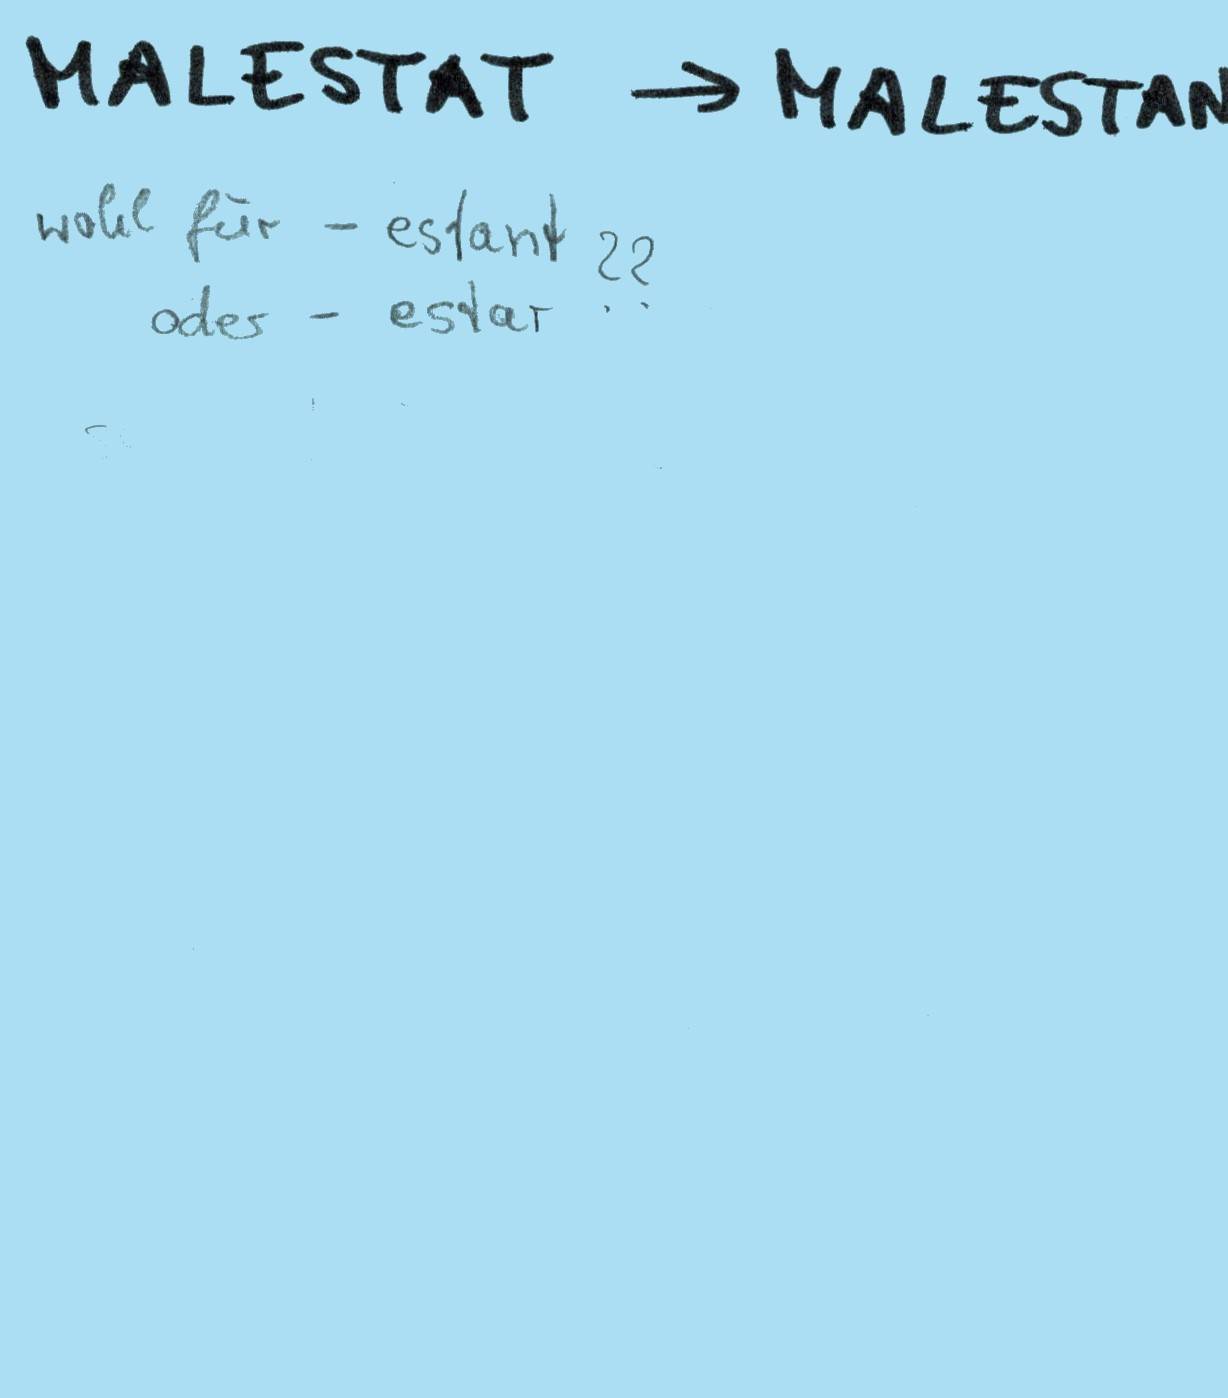 MALESTAT → MALESTAN
wohl für - estant ??
oder - estar